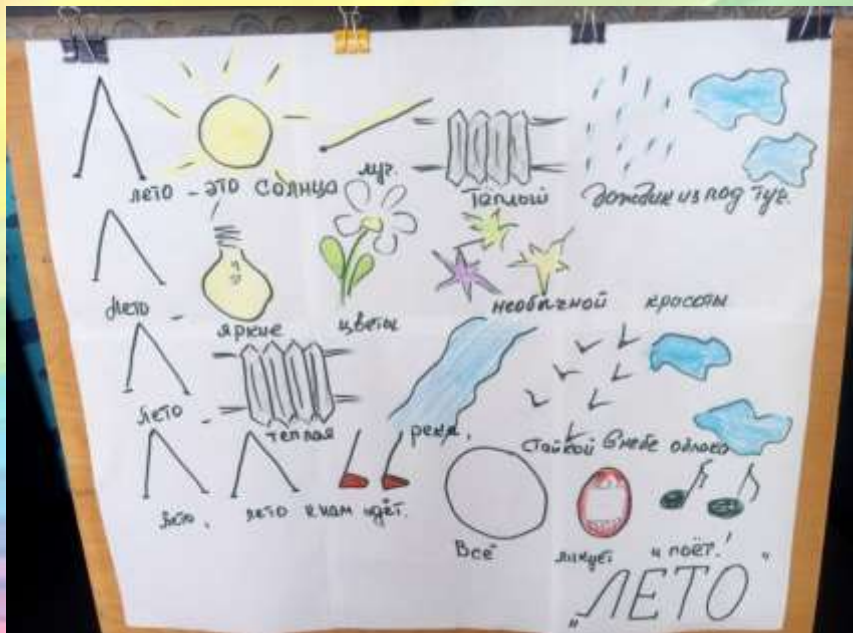 лето – это солнца луч.
Теплый дождик из под туч.
Лето – яркие цветы
необычной красоты
Лето – теплая река,
стайкой в небе облака
Лето, лето к нам идёт.
Всё ликует и поёт!
„ЛЕТО“